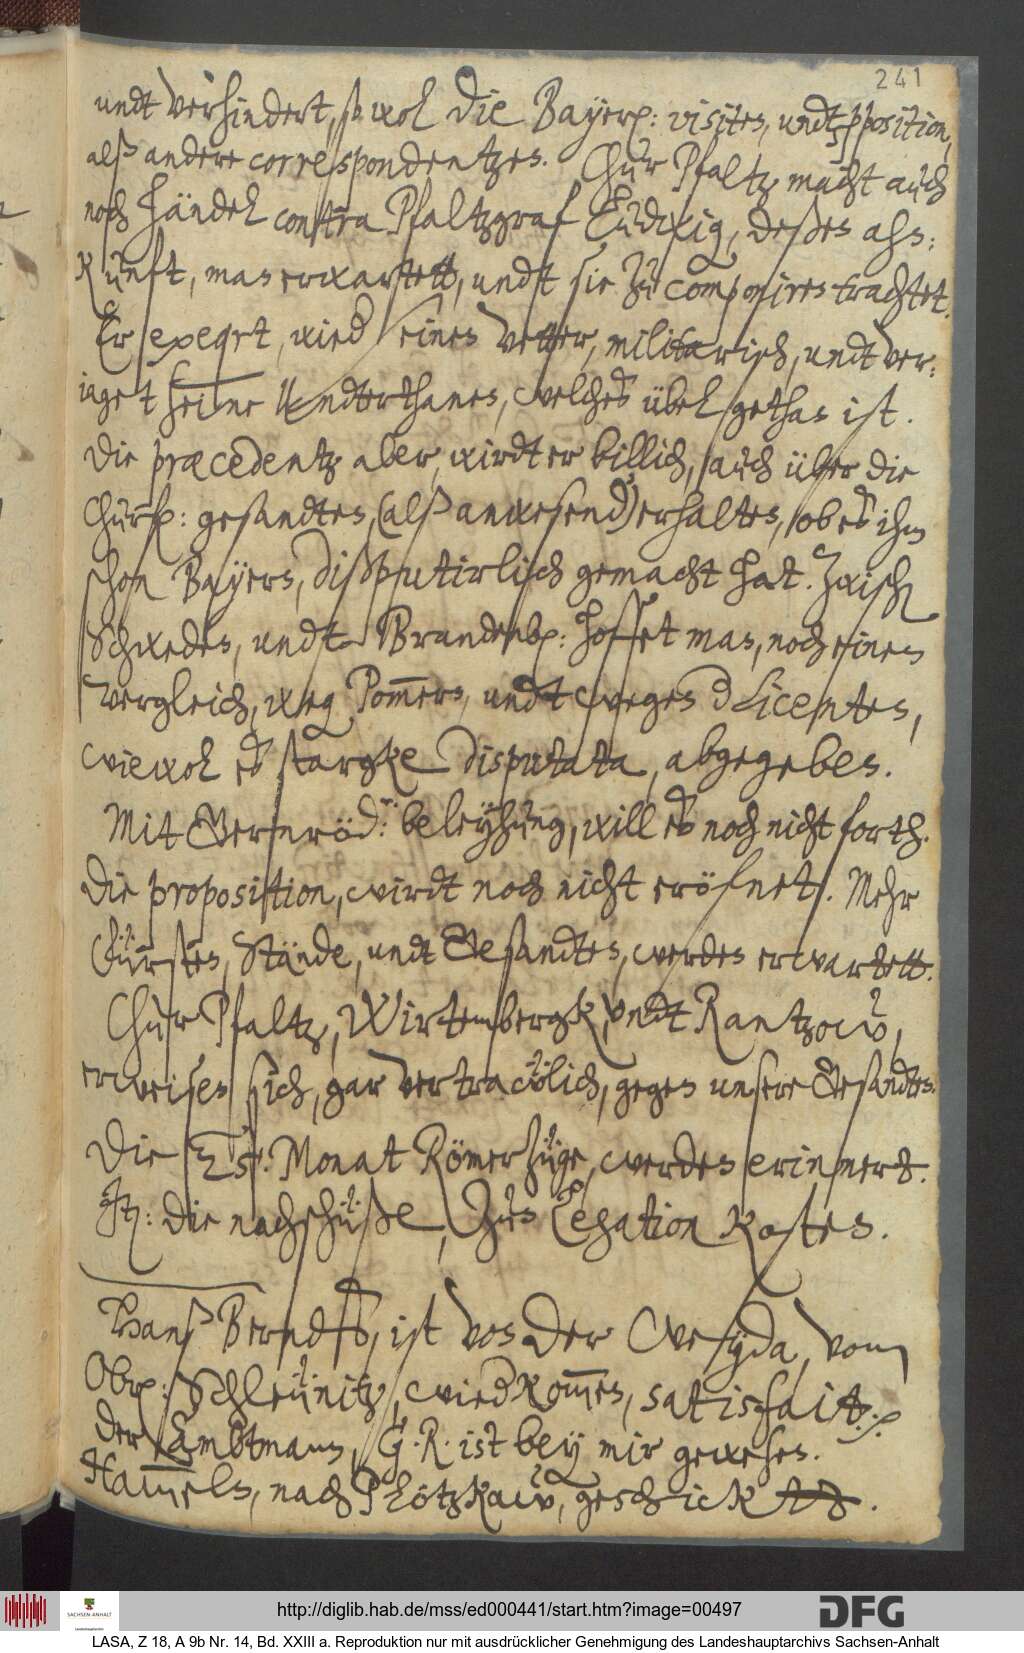 241
undt verhindert, so wol die Bayerß: visiten, undt opposition,
alß andere correspondentzen. Chur Pfaltz macht auch
noch händel contra Pfaltzgraf Ludwig, deßen ahn:
kunft, man erwartett, undt sie zu componiren trachtet.
Er exeqrt, wied seinen Vetter, militarisch, undt ver:
iaget seine Undterthanen, welches übel gethan ist.
Die præcedentz aber, wirdt er billich, auch über die
Churf: gesandten, (alß anwesend) erhalten, ob es ihm
schon Bayern, dißputirlich gemacht hat. Zwisch
Schweden, undt Brandenb: hoffet man, noch einen
vergleich, weg Pommern, undt wegen d Licenten,
wiewol es starcke disputata, abgegeben.
Mit Gernröd: beleyhung, will es noch nicht forth.
Die proposition, wirdt noch nicht eröfnet. Mehr
Fürsten, Stände, undt Gesandten, werden erwartett.
Chur Pfaltz, Wirtembergk, undt Rantzow,
erweisen sich, gar vertrawlich, gegen unsere Gesandten.
Die Monat Römerzüge, werden erinnert.
It: die nachschüße, zun Legation Kosten.
Hanß Berndt, ist von der Weyda, vom
Ob: Schleünitz, wied kommen, satisfait.
Der Ambtmann, G. R. ist bey mir gewesen.
nach Plötzkaw, geschickt.
http://diglib.hab.de/mss/ed000441/start.htm?image=00497
SACHSEN-ANHALT
DFG
LASA, Z 18, A 9b Nr. 14, Bd. XXIII a. Reproduktion nur mit ausdrücklicher Genehmigung des Landeshauptarchivs Sachsen-Anhalt